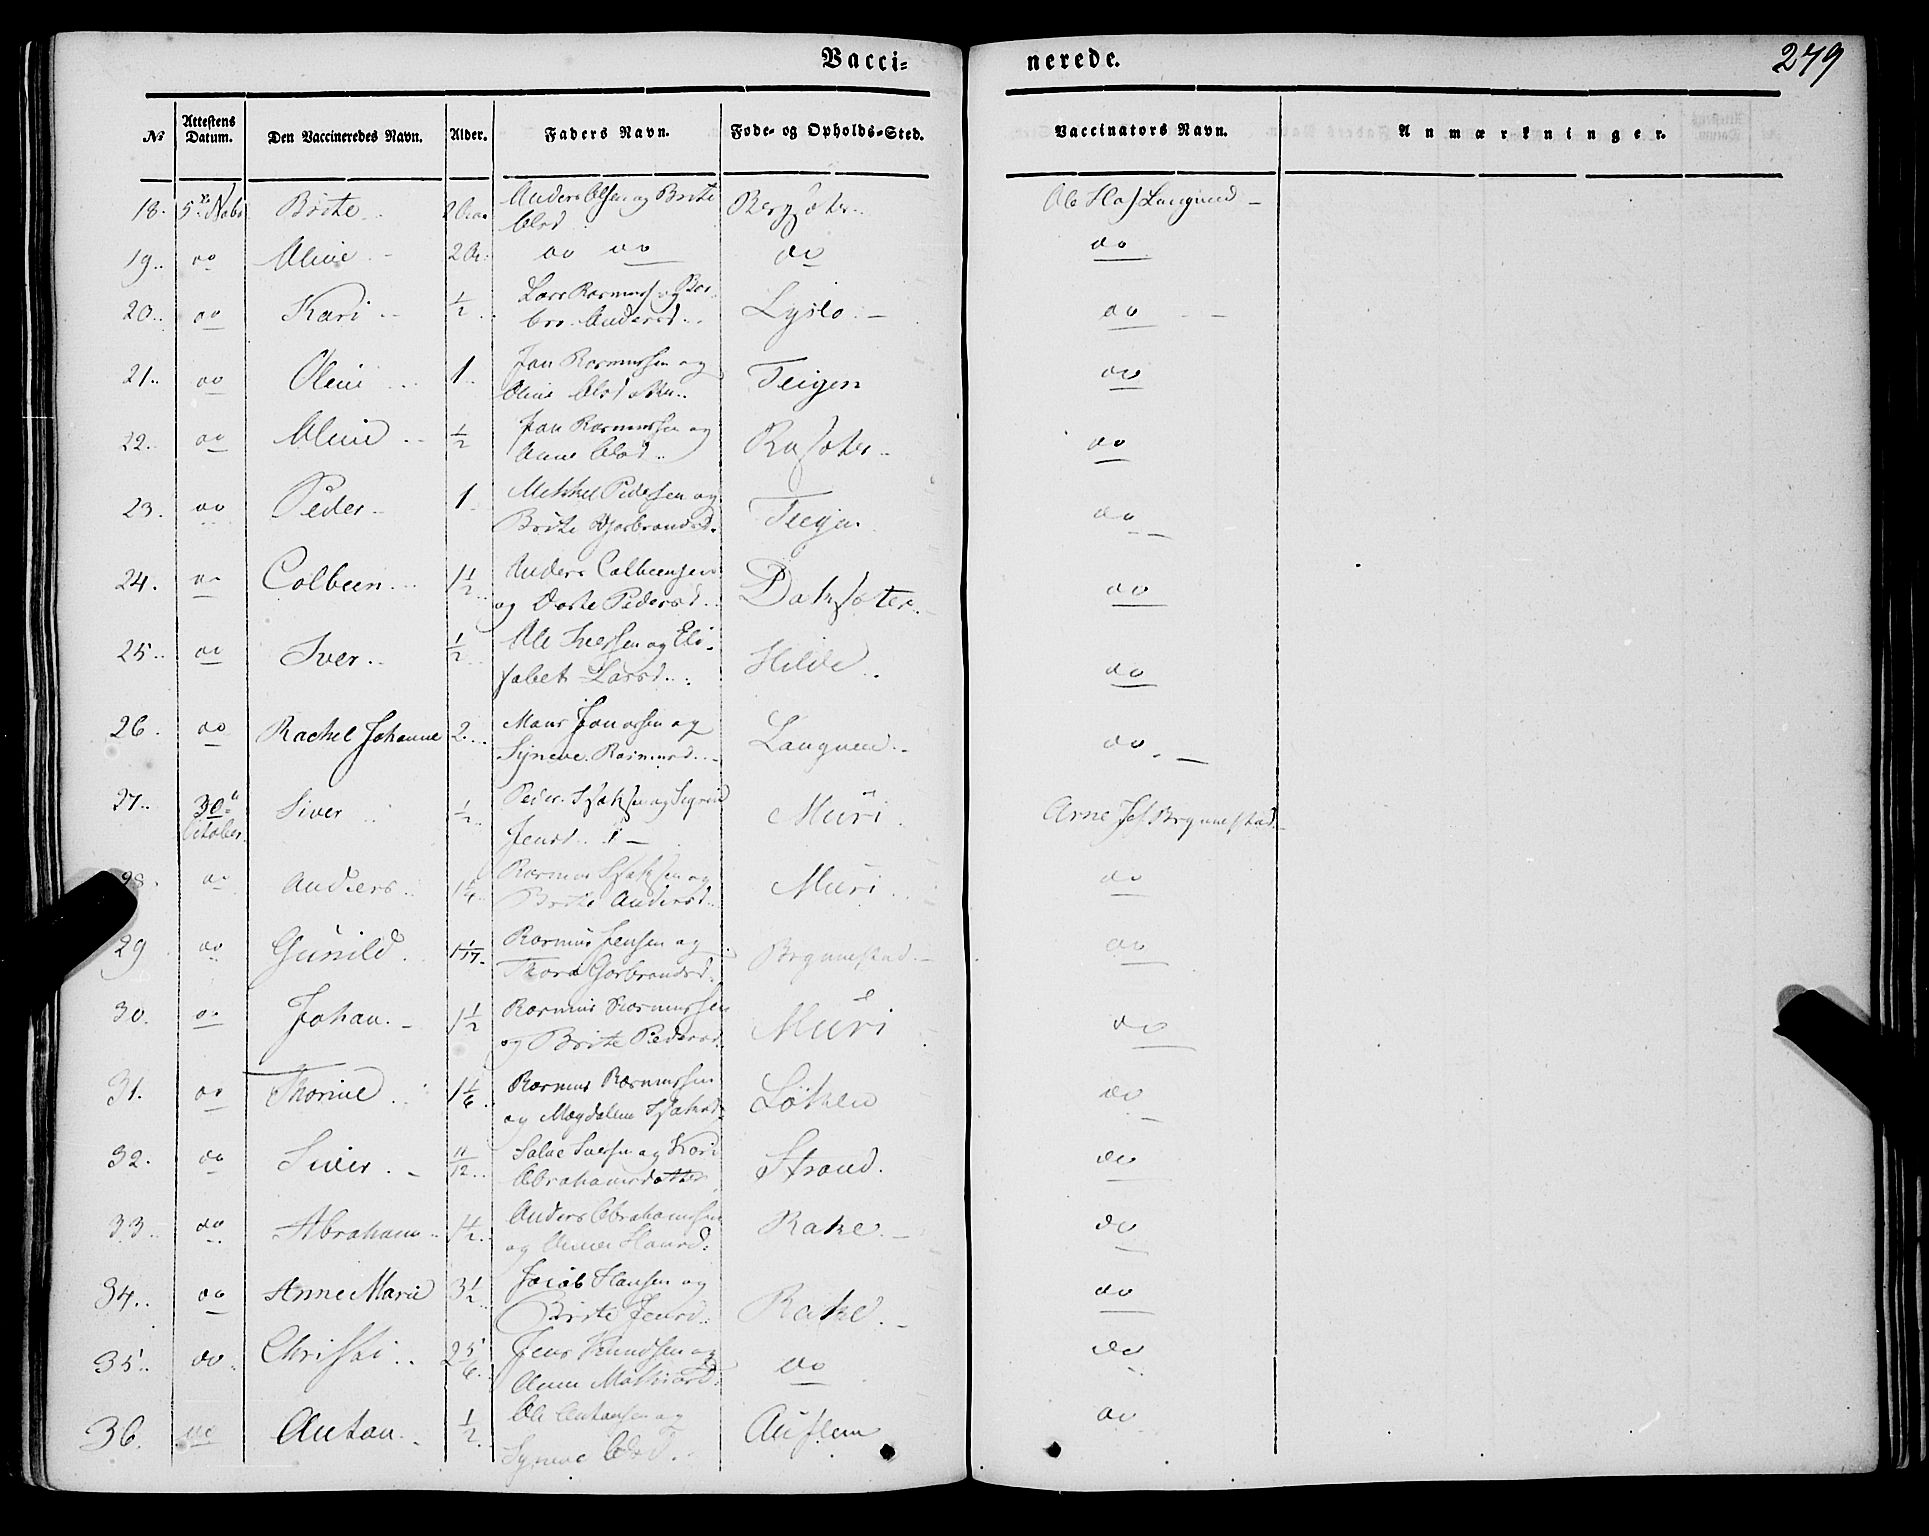 Vacci- nerede. 279
No Attestens Datum. Den Vaccineredes Navn. Alder. Faders Navn. Føde- og Opholds-Sted. Vaccinators Navn. Anmærkninger.
18. 5te Brite Anders Olsen og Brite Olsd
19. do Oline 2 do do do do
20. do Kari 1/2 Lars Rasmuss og Bar-
bro Andersd. Lyslo do
21. do Oline 1 Jon Rasmussen og
Oline Teigen do
22. do Oline 1/2 Jon Rasmussen og
Anne Olsd. do
23. do Peder 1 Mikkel Pedersen og
Brite Teigen do
24. do Colbeen 1 1/2 Anders Colbeensen
og Dorte Pedersd. do
25. do Iver 1/2 Ole Iversen og Eli-
sabet Larsd. Hilde do
26. do Rachel Johanne 2 Mons Jonassen og
Syneve Rasmusd. Langven do
27. 30te October Siver 1/2 Peder Isaksen og Sigrid
Jensd. Muri Arne Brynnestad
28. do Anders Rasmus Isaksen og
Brite Andersd. Muri do
29 do Gunild Rasmus Jensen og
Thora Gorbrandsd. Brynnestad do
30. do Johan 1 1/2 Rasmus Rasmussen
og Brite Pedersd. Muri do
31. do Thorine 1 1/6 Rasmus Rasmussen
og Magdalene Isaksd. Løken do
32. do Siver 11/12 Salve Iversen og Kari
Abrahamsdatter Strand. do
33. do Abraham 1 1/2 Anders Abrahamsen
og Hansd. Rake do
34. do Anne Marie 3 1/2 Jacob Hansen og
Brite Jensd. Rake do
35. do Christi 2 5/6 Jens Knudsen og
Anne Mathiasd. do do
36. do Anton 1/2 Ole Antonsen og
Syneve Olsd. Auflem do